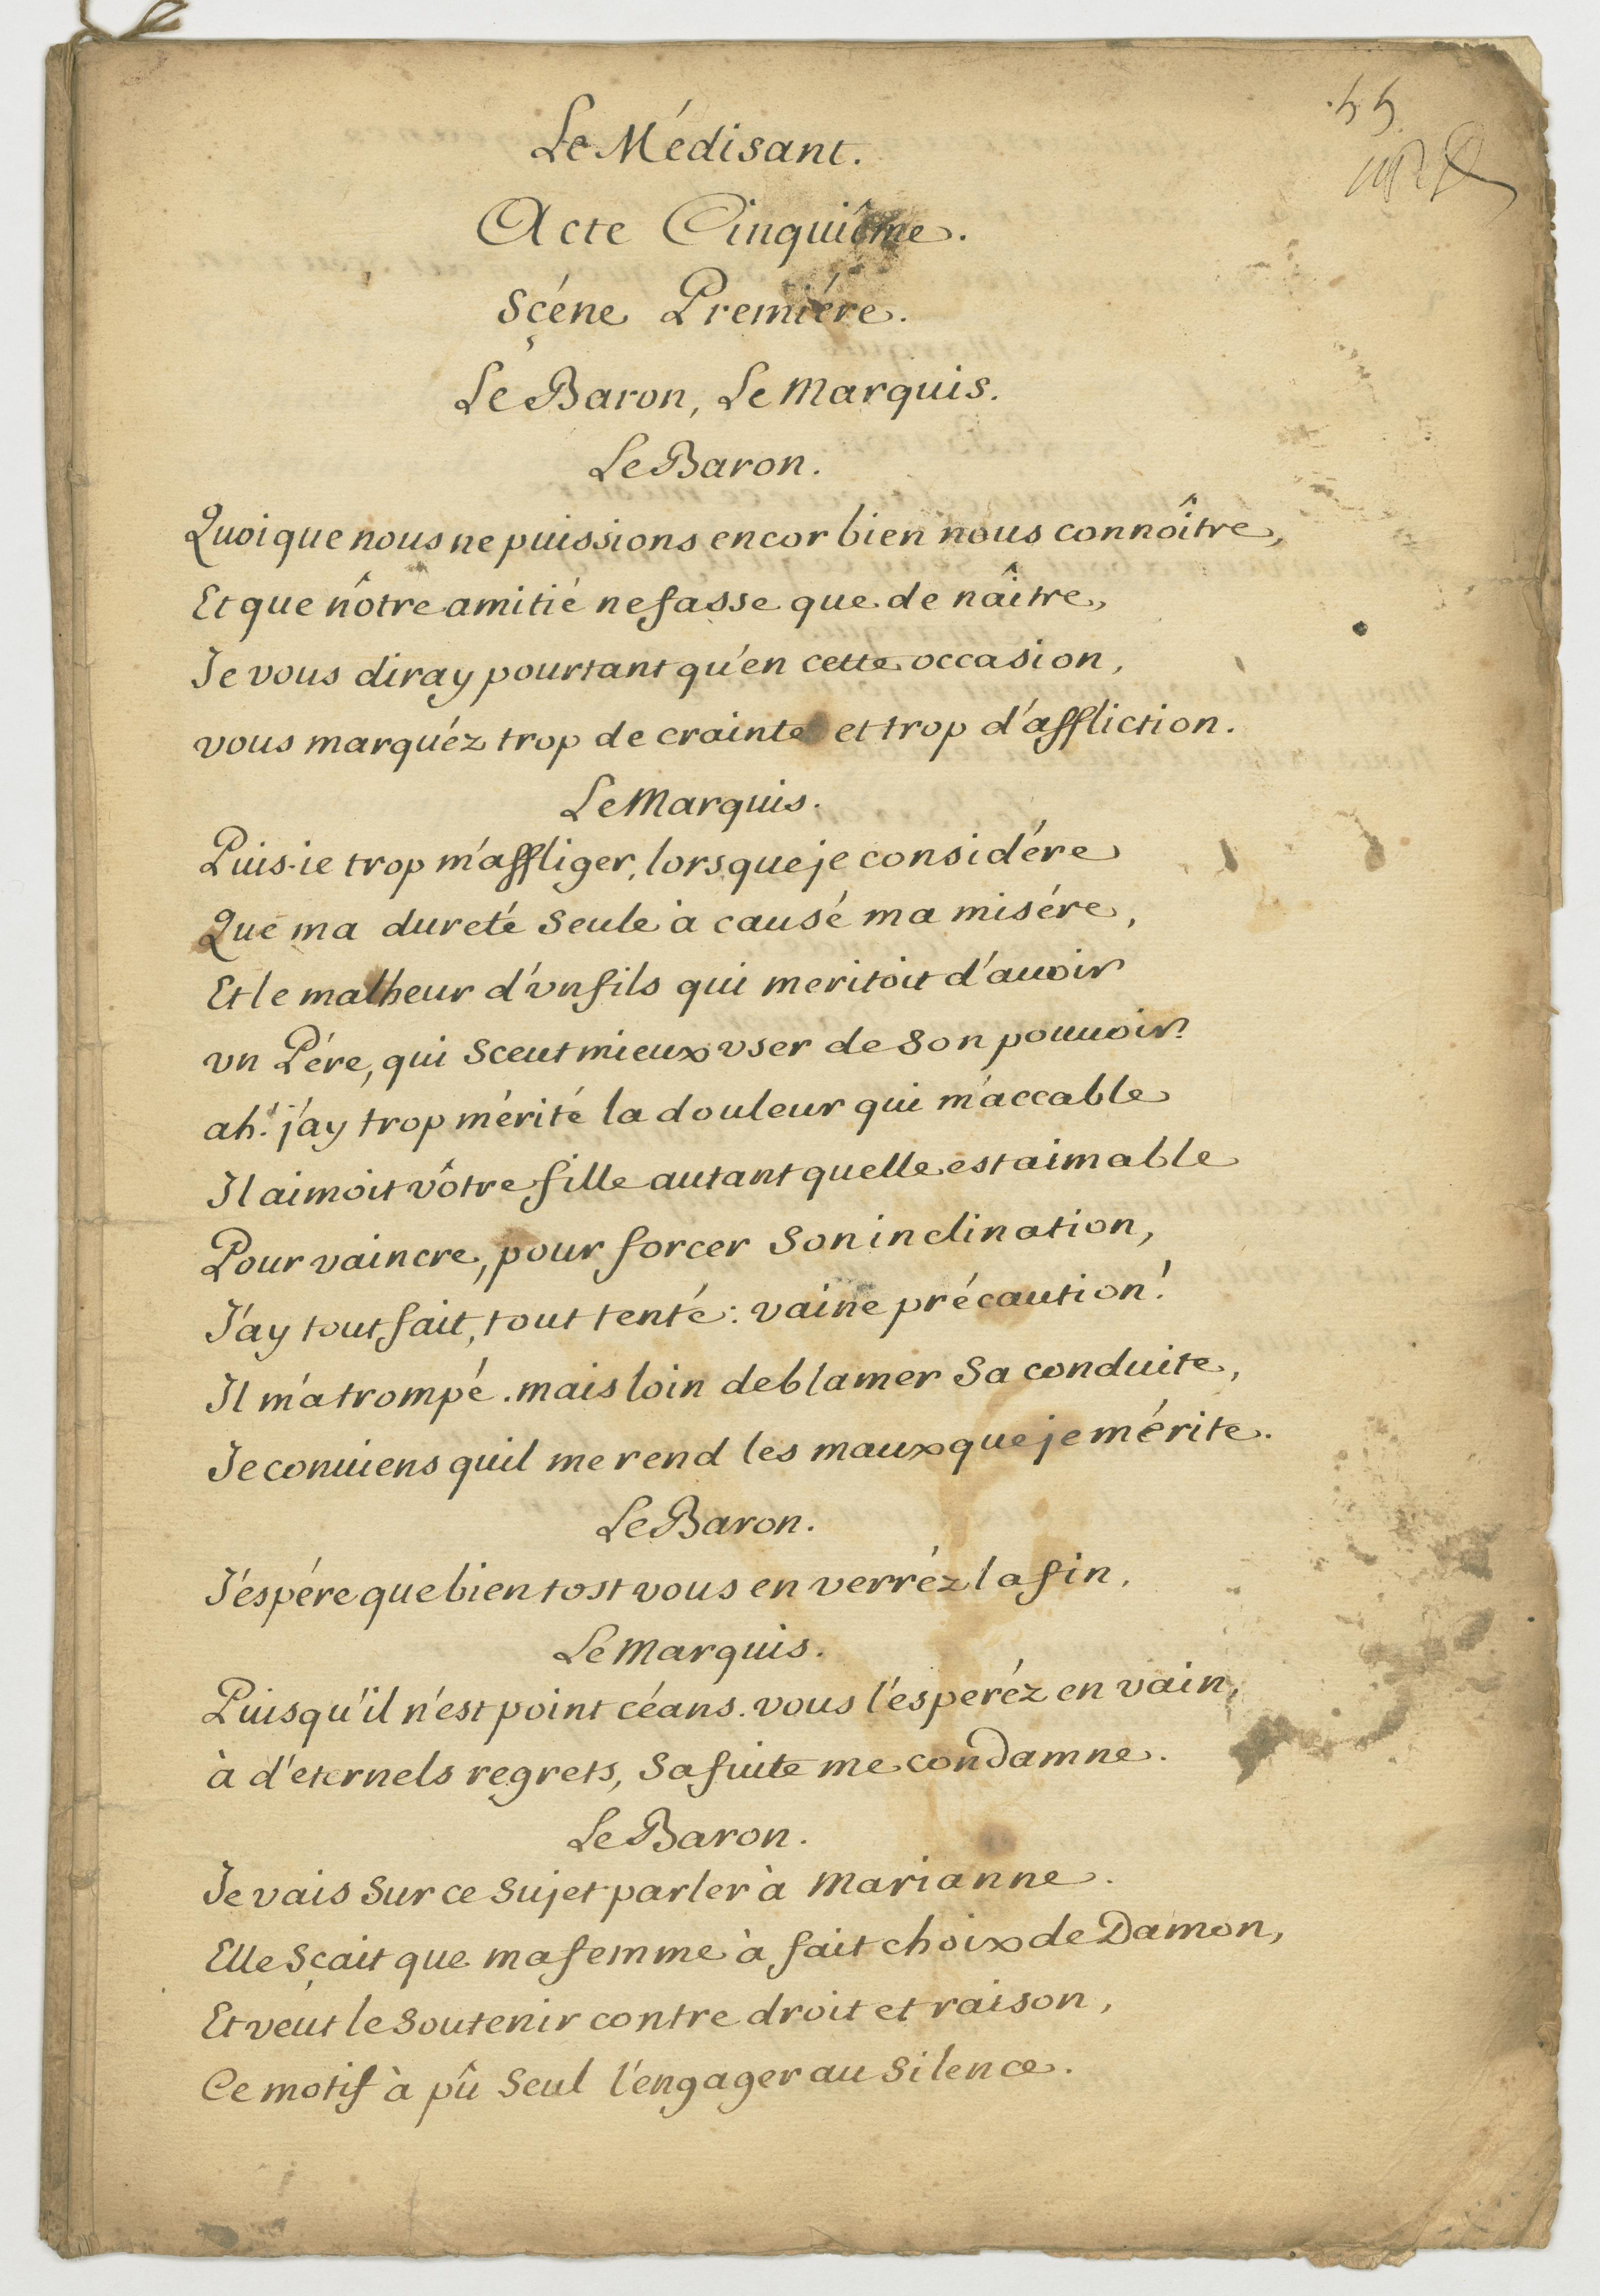 55
Le Médisant.
Acte Cinquiême.
Sçéne Premiére.
Le Baron, Le Marquis.
Le Baron.
Quoique nous ne puissions encor bien nous connoître,
Et que nôtre amitié ne fasse que de naître,
Je vous diray pourtant qu'en cette occasion,
vous marquéz trop de crainte et trop d'affliction.
Le Marquis.
Puis-ie trop m'affliger, lorsque je considére
Que ma dureté Seule à causé ma misére,
Et le malheur d'vn fils qui meritoit d'auoir
vn Pére, qui Sceut mieux vser de Son pouuoir?
ah! j'ay trop mérité la douleur qui m'accable
Il aimoit vôtre fille autant quelle est aimable
Pour vaincre, pour forcer Son inclination,
J'ay tout fait, tout tenté: vaine précaution!
Il m'a trompé. mais loin de blamer Sa conduite,
Je conuiens quil me rend les maux que je mérite.
Le Baron.
J'espére que bien tost vous en verréz la fin.
Le Marquis.
Puisqu'il n'est point céans. vous l'esperéz en vain,
à d'eternels regrets, Sa fuite me condamne.
Le Baron.
Je vais Sur ce Sujet parler à Marianne.
Elle Sçait que ma femme à fait choix de Damon,
Et veut le Soutenir contre droit et raison,
Ce motif à pû Seul l'engager au Silence.